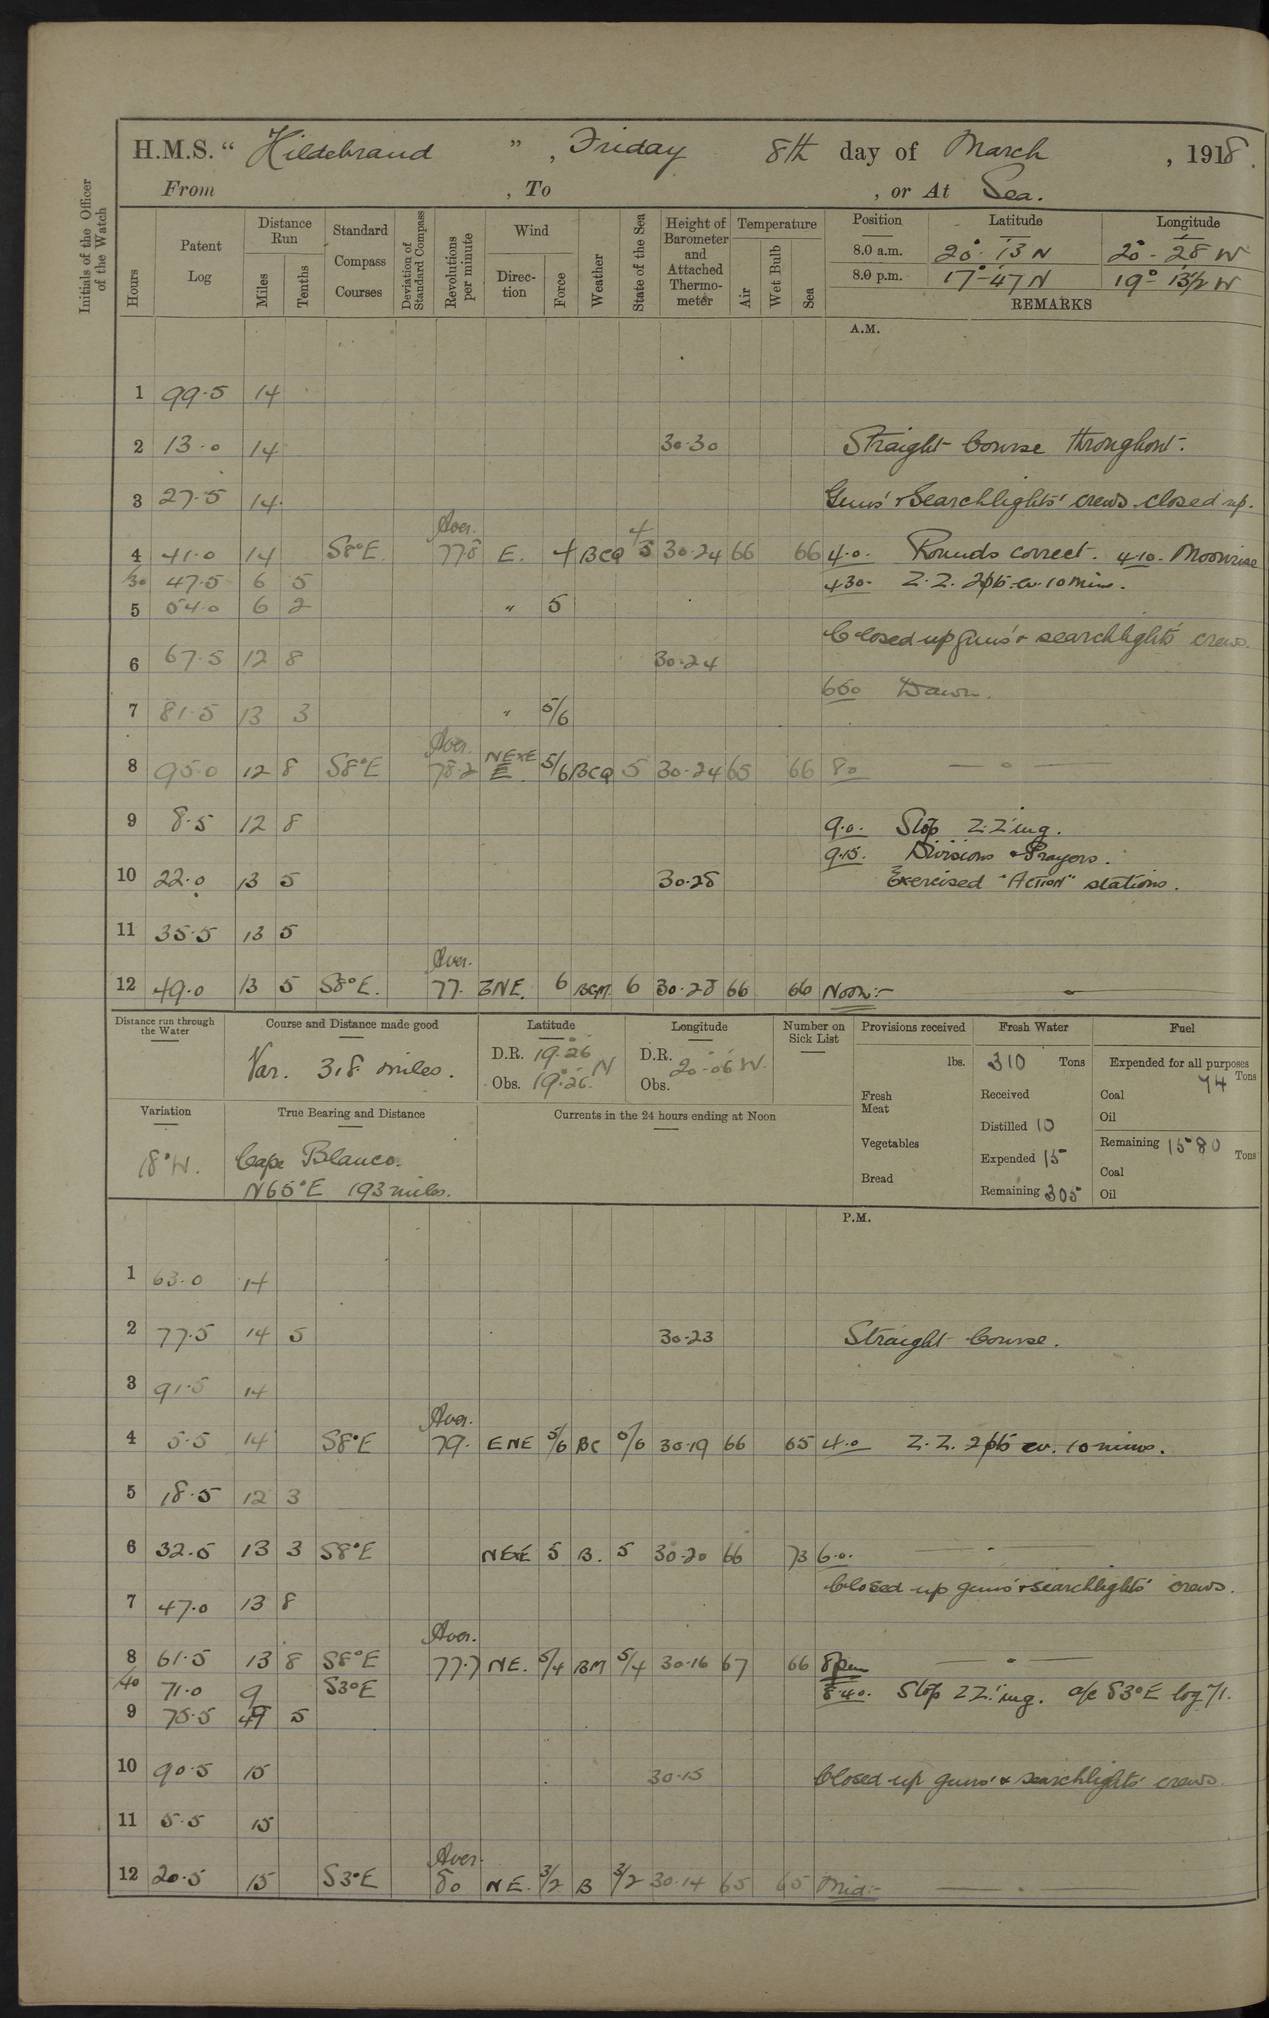 H.M.S. " Hildebrand ", Friday 8th day of March, 1918.
From , To , or At Sea.
Initials of the Officer of the Watch
Hours
Patent Log
Distance Run
Miles
Tenths
Standard Compass Courses
Deviation of Standard Compass
Revolutions per minute
Wind
Direction
Force
Weather
State of the Sea
Height of Barometer and Attached Thermometer
Temperature
Air
Wet Bulb
Sea
Position Latitude Longitude
8.0 a.m. 20°-13 N 20°-28 W
8.0 p.m. 17°-47 N 19°-13½ W
REMARKS
A.M.
1 99.5 14
2 13.0 14 30.30 Straight Course throughout.
3 27.5 14. Guns' & Searchlights' crews closed up.
Aver.
4 41.0 14 S8°E. 77.8 E. 4 BCQ 4/5 30.24 66 66 4.0. Rounds correct. 4.10. Moonrise
/30 47.5 6 5 4.30. Z.Z. 2pts ev. 10 min.
5 54.0 6 2 " 5
Closed up guns' & searchlights' crews.
6 67.5 12 8 30.24
650 Dawn.
7 81.5 13 3 " 5/6
Aver.
8 95.0 12 8 S8°E 78.2 NExE 5/6 BCQ 5 30.24 65 66 80
9 8.5 12 8 9.0. Stop Z.Z'ing.
9.15. Divisions & Prayers.
10 22.0 13 5 30.28 Exercised "Action" stations.
11 35.5 13 5
Aver.
12 49.0 13 5 S8°E. 77. ENE. 6 BCM. 6 30.28 66 66 Noon:-
Distance run through the Water
Course and Distance made good
Var. 318 miles.
Latitude
D.R. 19°.26 N
Obs. 19°.26.
Longitude
D.R. 20°-06' W.
Obs.
Number on Sick List
Provisions received
lbs.
Fresh Meat
Vegetables
Bread
Fresh Water
310 Tons
Received
Distilled 10
Expended 15
Remaining 305
Fuel
Expended for all purposes
74 Tons
Coal
Oil
Remaining 1580 Tons
Coal
Oil
Variation
18°W.
True Bearing and Distance
Cape Blanco.
N65°E 193 miles.
Currents in the 24 hours ending at Noon
P.M.
1 63.0 14
2 77.5 14 5 30.23 Straight Course.
3 91.5 14
Aver.
4 5.5 14 S8°E 79. ENE 5/6 BC 5/6 30.19 66 65 4.0 Z.Z. 2pts ev. 10 mins.
5 18.5 12 3
6 32.5 13 3 S8°E NExE 5 B. 5 30.20 66 73 6.0.
Closed up guns' & searchlights' crews.
7 47.0 13 8
Aver.
8 61.5 13 8 S8°E 77.7 NE. 5/4 BM 5/4 30.16 67 66 8pm
/40 71.0 9 S3°E 8.40. Stop ZZ'ing. a/c S3°E log 71.
9 75.5 5
10 90.5 15 30.15 Closed up guns' & searchlights' crews.
11 5.5 15
Aver.
12 20.5 15 S3°E 80 NE. 3/2 B 3/2 30.14 65 65 Mid:-